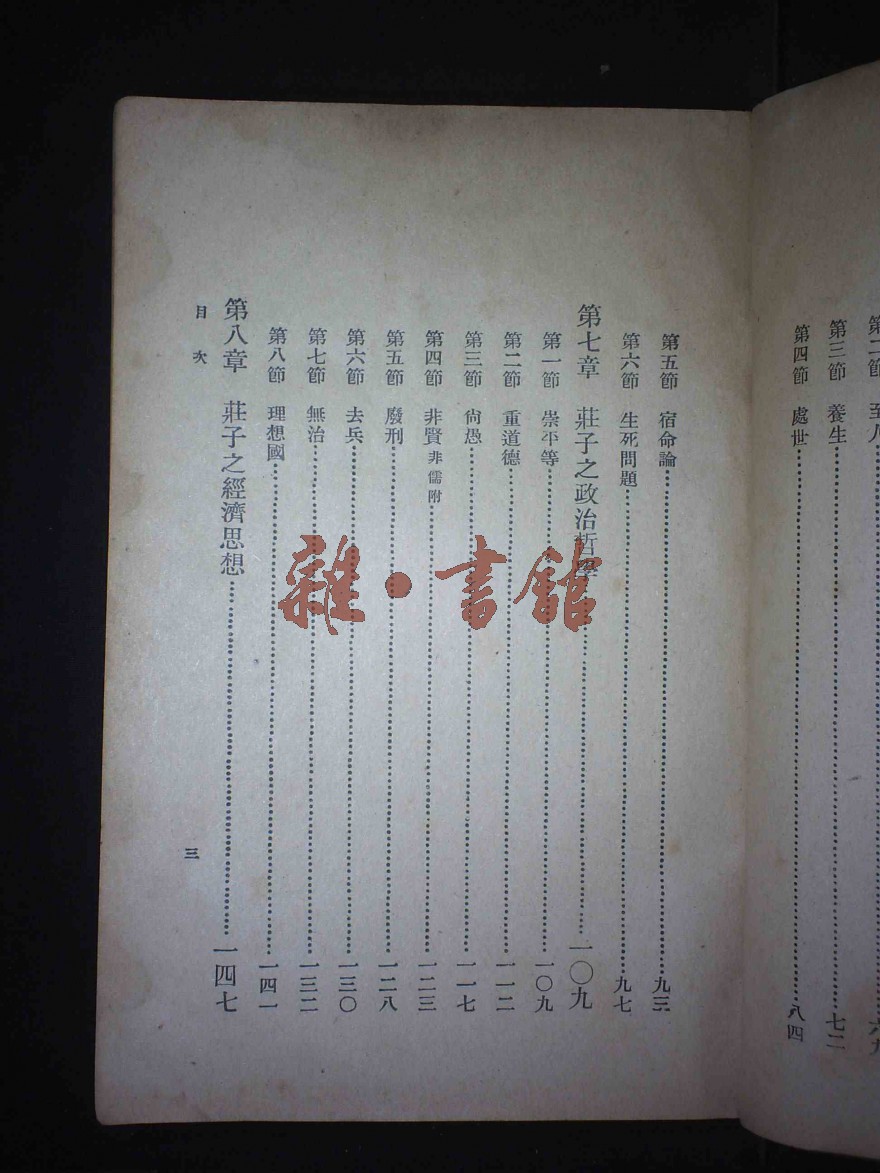 第二節 至人………六九
第三節 養生………七二
第四節 處世………八四
第五節 宿命論………九三
第六節 生死問題………九七
第七章 莊子之政治哲學………一〇九
第一節 崇平等………一〇九
第二節 重道德………一一二
第三節 尙愚………一一七
第四節 非賢非儒附………一二三
第五節 廢刑………一二八
第六節 去兵………一三〇
第七節 無治………一三二
第八節 理想國………一四一
第八章 莊子之經濟思想………一四七
目次
三
雜·書館